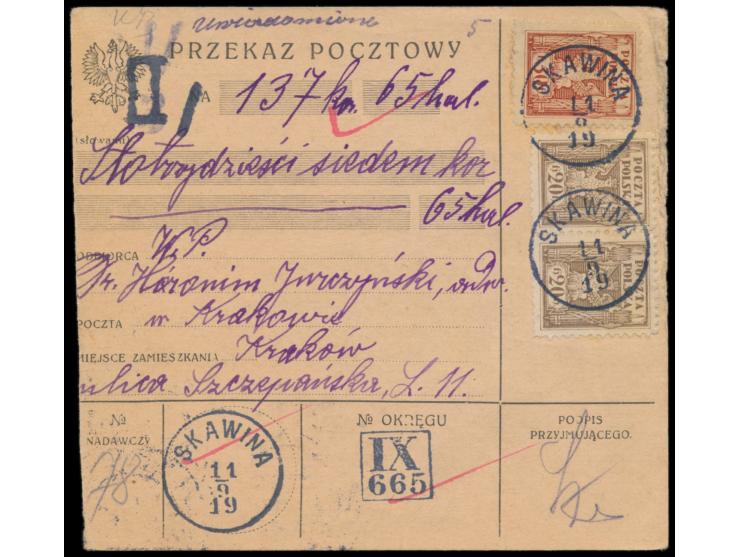 uwiadomione 5
PRZEKAZ POCZTOWY
I
NA 137 kor. 65 hal.
(słowami)
Stotrzydzieści siedem kor
65 hal.
ODBIORCA W.P.
Dr. Hieronim Jurczyński, adw.
POCZTA w Krakowie
MIEJSCE ZAMIESZKANIA Kraków
ulica Szczepańska, L. 11.
№ NADAWCZY
78
SKAWINA
11
9
19
№ OKRĘGU
IX
665
PODPIS
PRZYJMUJĄCEGO.
POCZTA
SKAWINA
11
9
19
POCZTA
POLSKA
20
SKAWINA
11
9
19
POCZTA
POLSKA
20